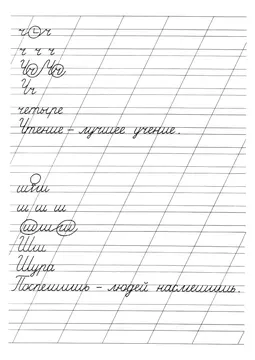 ч ч ч
ч ч ч
Чч Чч
Чч
четыре
Чтение – лучшее учение.
ш ш
ш ш ш
ш ш ш
Шш
Шура
Поспешишь – людей насмешишь.